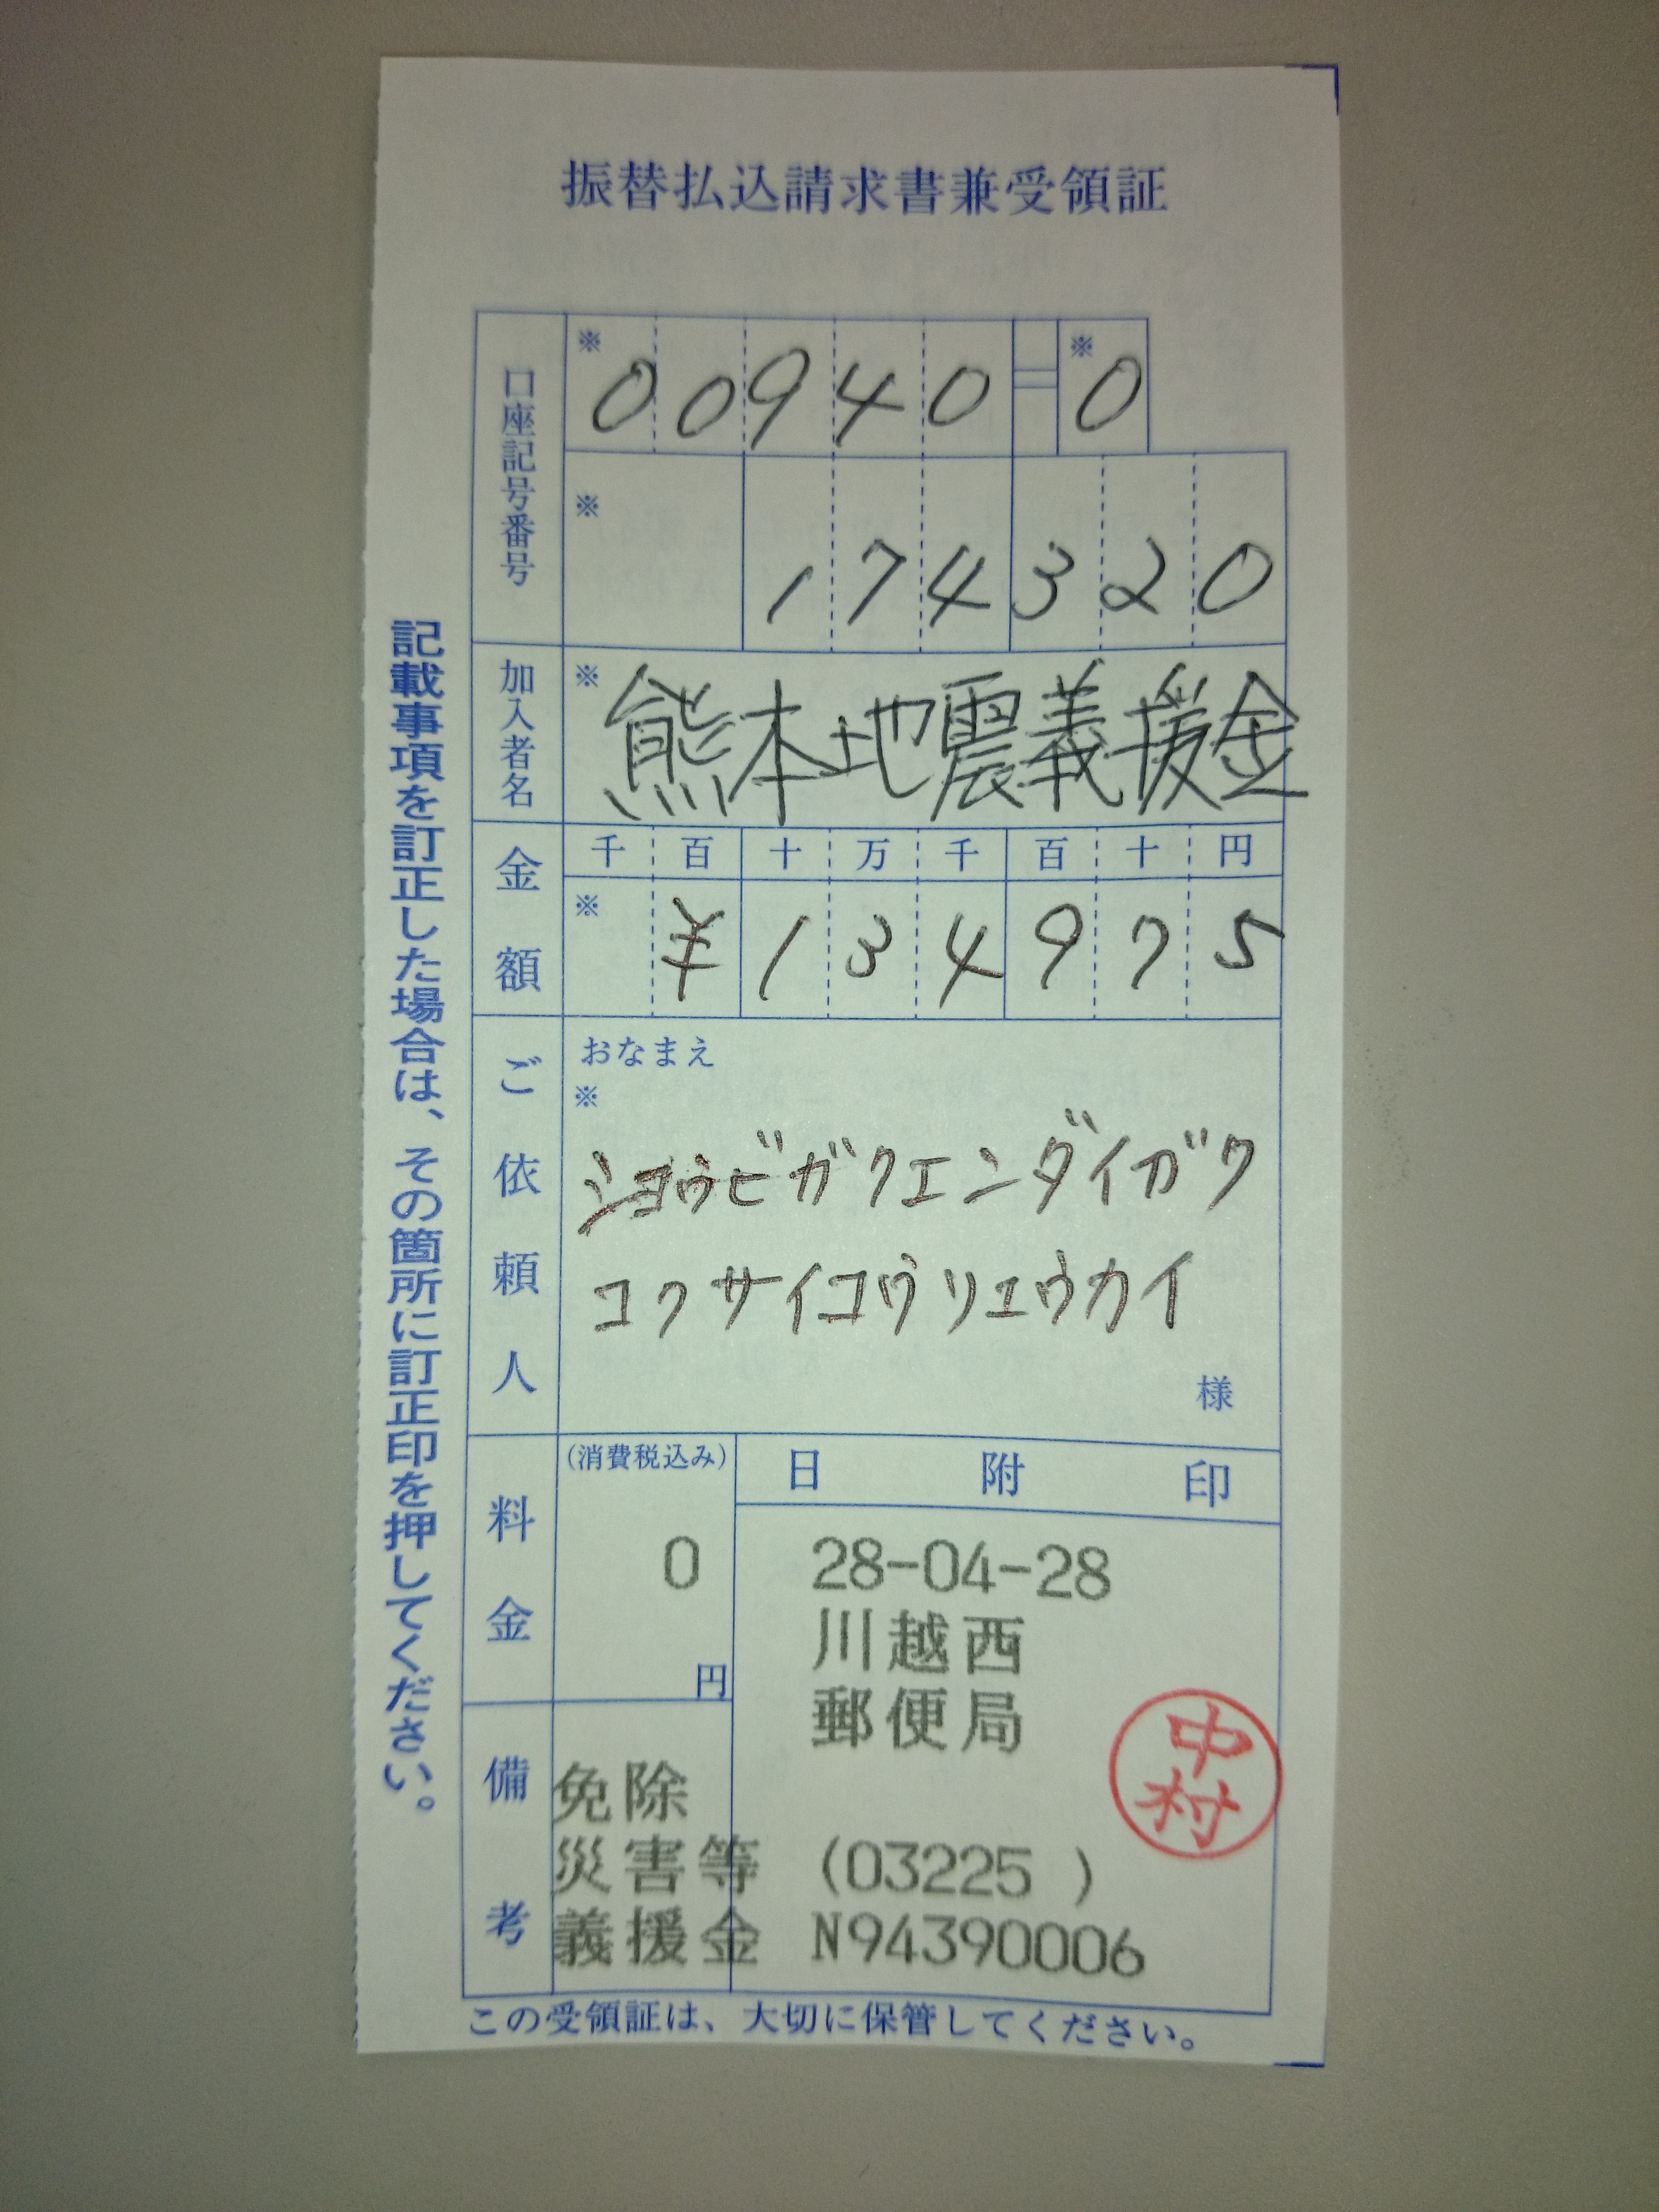 振替払込請求書兼受領証
口座記号番号
※ 00940 = ※ 0
※ 174320
加入者名
※ 熊本地震義援金
金額
千 百 十 万 千 百 十 円
※ ¥134975
ご依頼人
おなまえ
※
ショウビガクエンダイガク
コクサイコウリュウカイ
様
料金
(消費税込み)
0
円
日附印
28-04-28
川越西
郵便局
中村
備考
免除
災害等 (03225 )
義援金 N94390006
この受領証は、大切に保管してください。
記載事項を訂正した場合は、その箇所に訂正印を押してください。